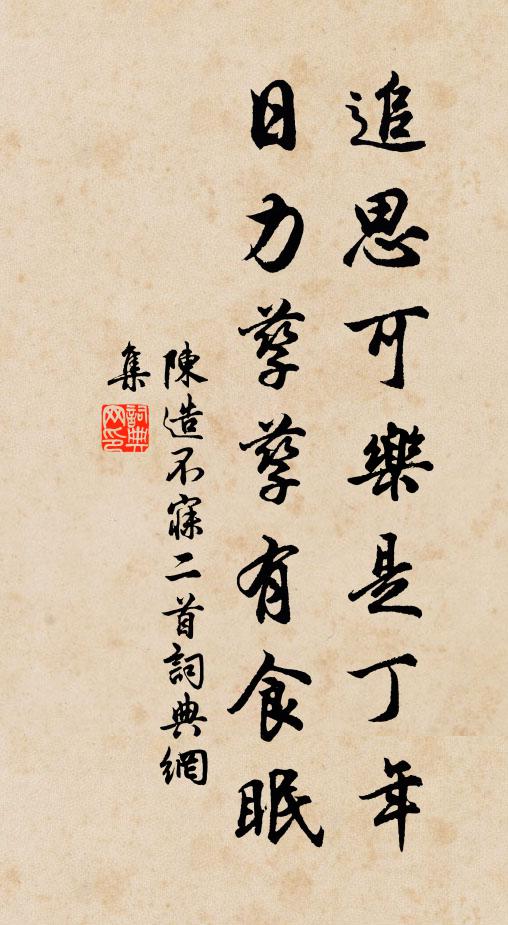 追思可樂是丁年
日力孳孳有食眠
陳造不寐二首詞典網
集
詞典
网印